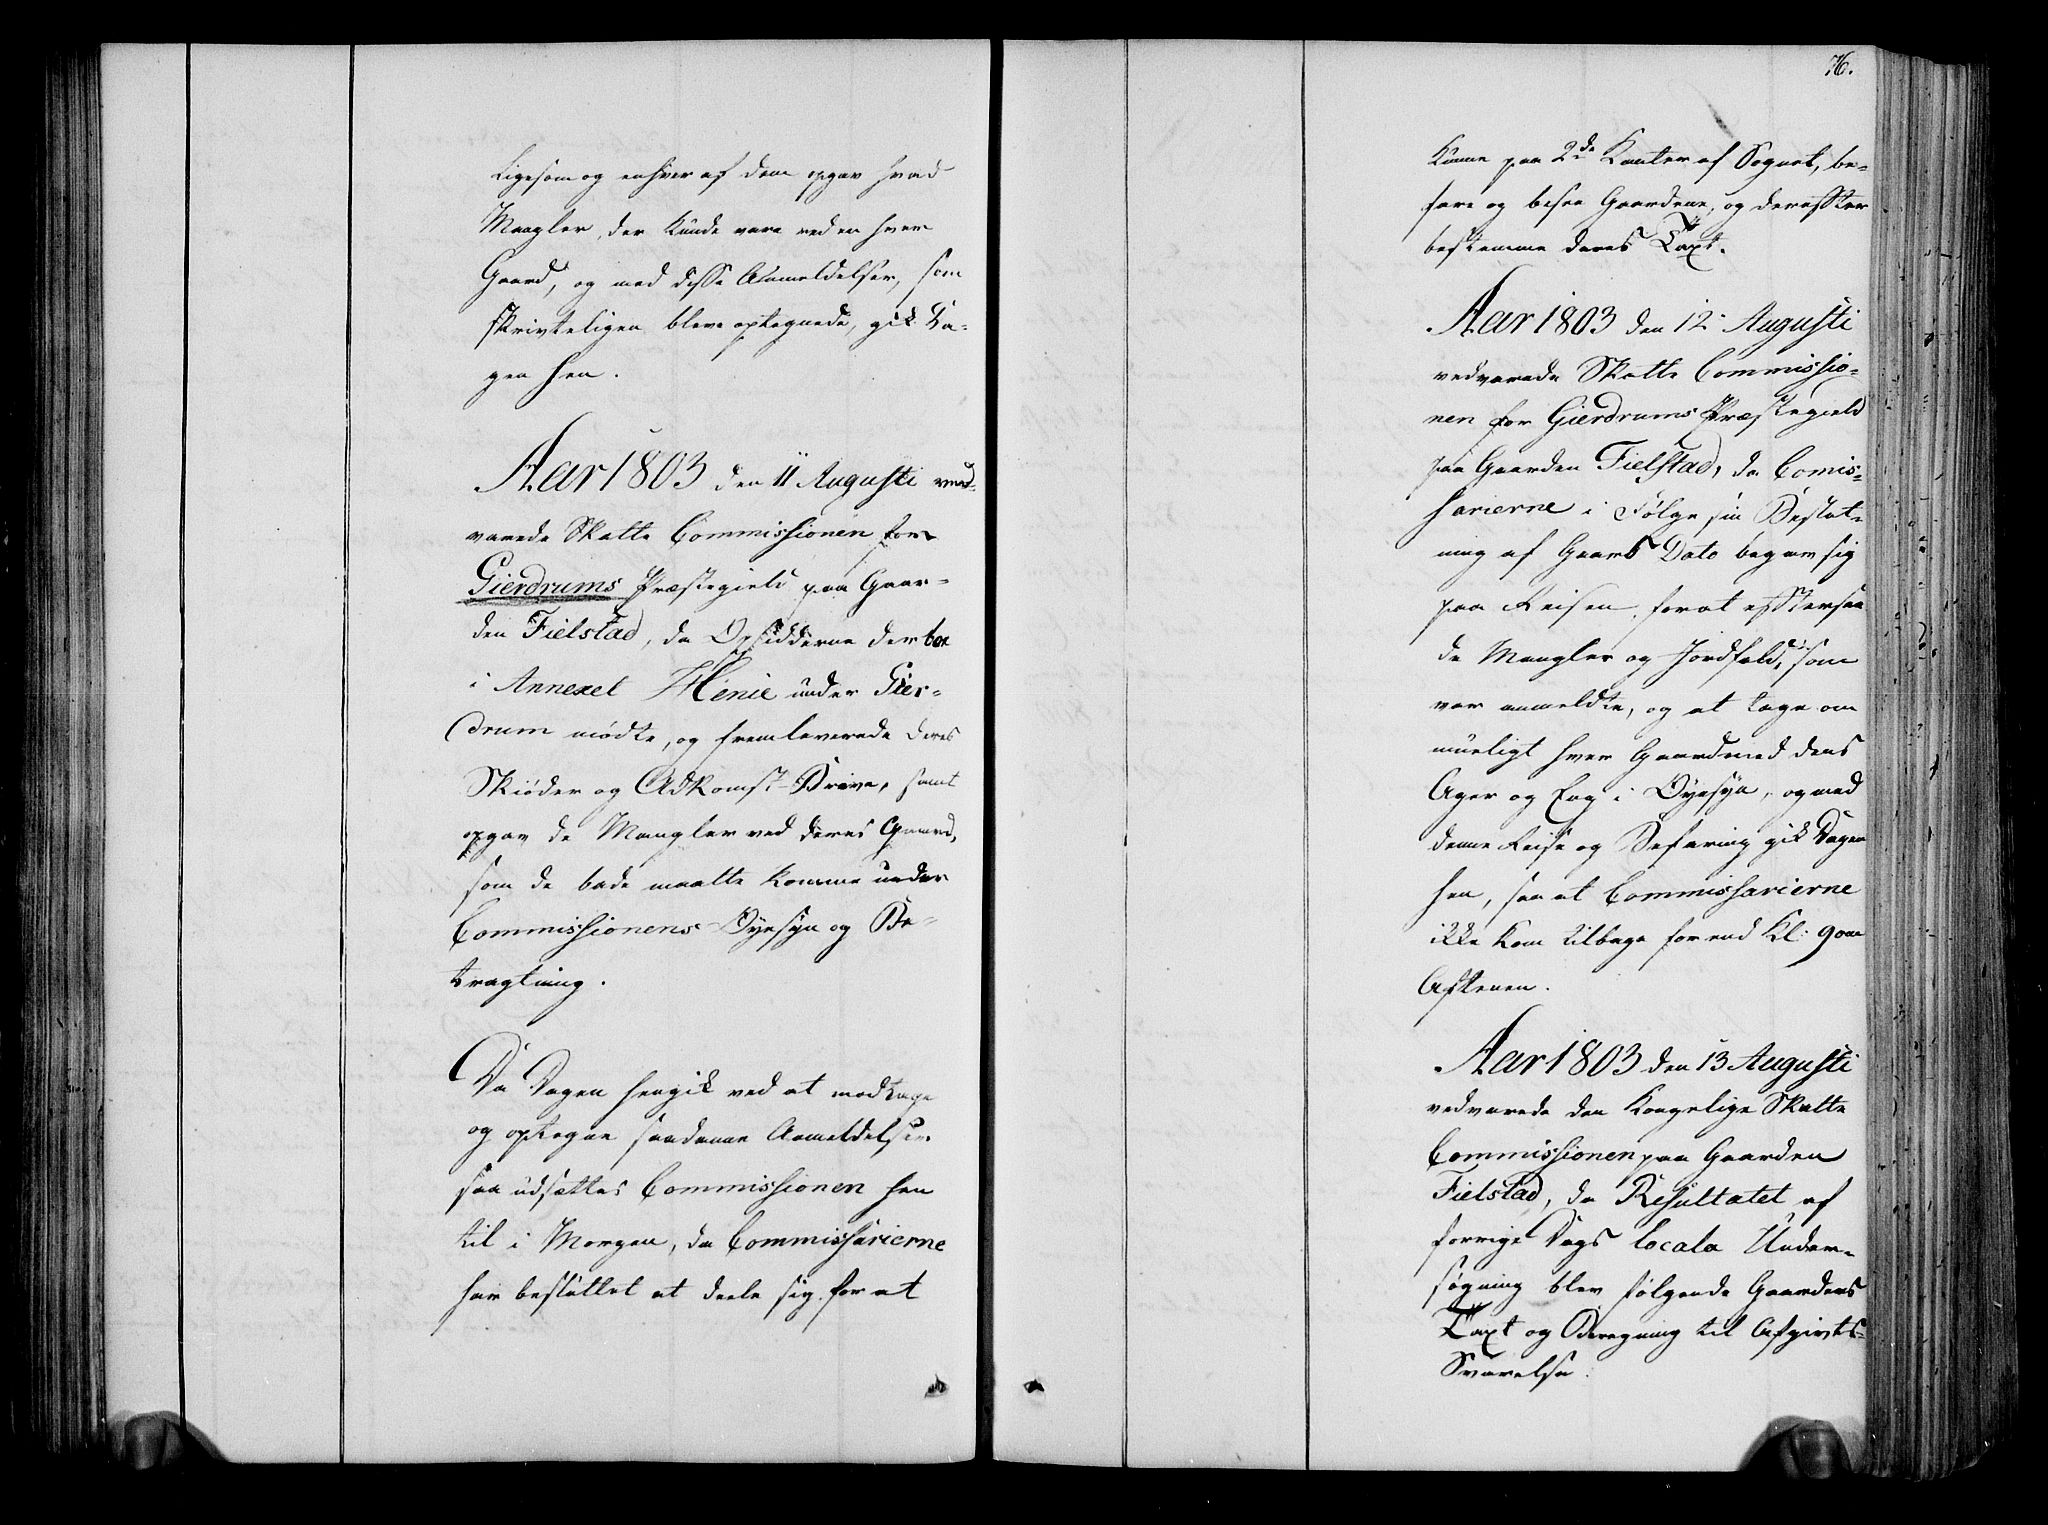 Ligesom og enhver af dem opgav hvad
Mangler, der kunde være ved en hver
Gaard, og med disse Anmeldelser, som
skrivteligen bleve optegnede, gik Da-
gen hen.
Aar 1803 den 11 Augusti ved-
varede Skatte Commissionen for
Gierdrums Præstegield paa Gaar-
den Fielstad, da Opsidderne der boe
i Annexet Henie under Gier-
drum mødte, og fremleverede deres
Skiøder og Adkomst-Breve, samt
opgav de Mangler ved deres Gaard,
som de bade maatte komme under
Commissionens Øyesyn og Be-
tragtning.
Da Dagen hengik ved at modtage
og optegne saadanne Anmeldelser
saa udsættes Commissionen hen
til i Morgen, da Commissarierne
har besluttet at deele sig for at
76.
kunne paa 2de Kanter af Sognet, be-
fare og besee Gaardene, og derefter
bestemme deres Taxt.
Aar 1803 den 12 Augusti
vedvarede Skatte Commissio-
nen for Gierdrums Præstegield
paa Gaarden Fielstad, da Comis-
sarierne i Følge sin Beslut-
ning af Gaars Dato begav sig
paa Reisen for at eftersee
de Mangler og Jordfald, som
var anmeldte, og at tage om
mueligt hver Gaard med dens
Ager og Eng i Øyesyn, og med
denne Reise og Befaring gik Dagen
hen, saa at Commissarierne
ikke kom tilbage forend Kl: 9 om
Aftenen.
Aar 1803 den 13 Augusti
vedvarede den Kongelige Skatte
Commissionen paa Gaarden
Fielstad, da Resultatet af
forrige Dags locale Under-
søgning blev følgende Gaarders
Taxt og Beregning til Afgivts-
Svarelse: